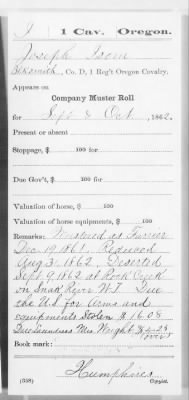 I | 1 Cav. | Oregon.
Joseph Isom
Blksmith, Co. D, 1 Reg't Oregon Cavalry.
Appears on
Company Muster Roll
for Sept & Oct, 1862.
Present or absent
Stoppage, $ 100 for
Due Gov't, $ 100 for
Valuation of horse, $ 100
Valuation of horse equipments, $ 100
Remarks: Mustered as Farrier
Dec. 19, 1861. Reduced
Aug 31, 1862. Deserted
Sept 9, 1862 at Rock Creek
on Snake River W.T. Due
the U.S. for Arms and
equipments Stolen $16.08
Due Laundress Mrs. Wright $4.28
over
Book mark:
Humphries
(358) Copyist.